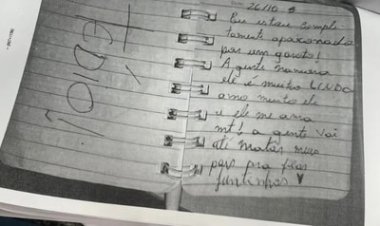 26/10
Eu estou comple
tamente apaxonada
por um garoto!
A gente namora
ele é muito LINDO
amo muito ele
e ele me ama
mt! a gente vai
até matar meus
pais pra ficar
juntinhos ♥